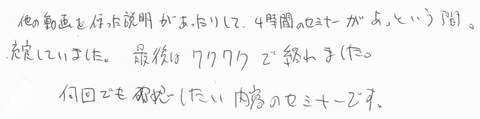 他の動画を使った説明があったりして、4時間のセミナーがあっという間。
充実していました。 最後はワクワクで終れました。
何回でも確認したい内容のセミナーです。